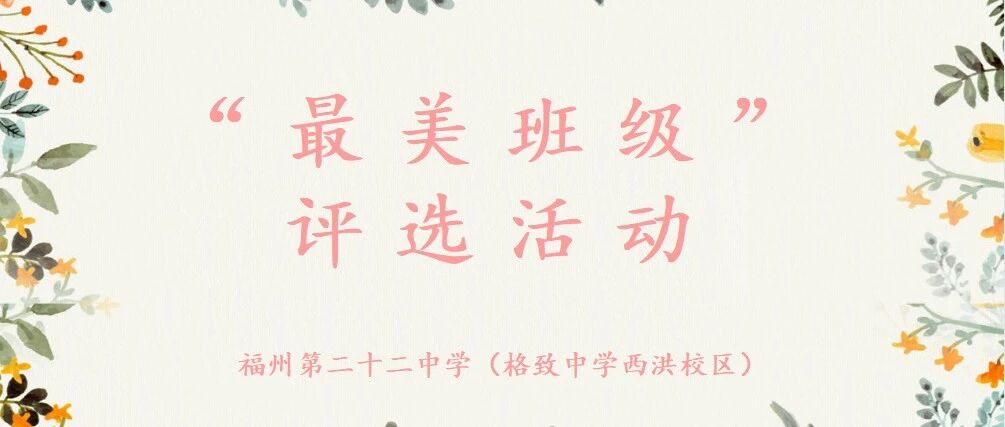 “最美班级”
评选活动
福州第二十二中学（格致中学西洪校区）